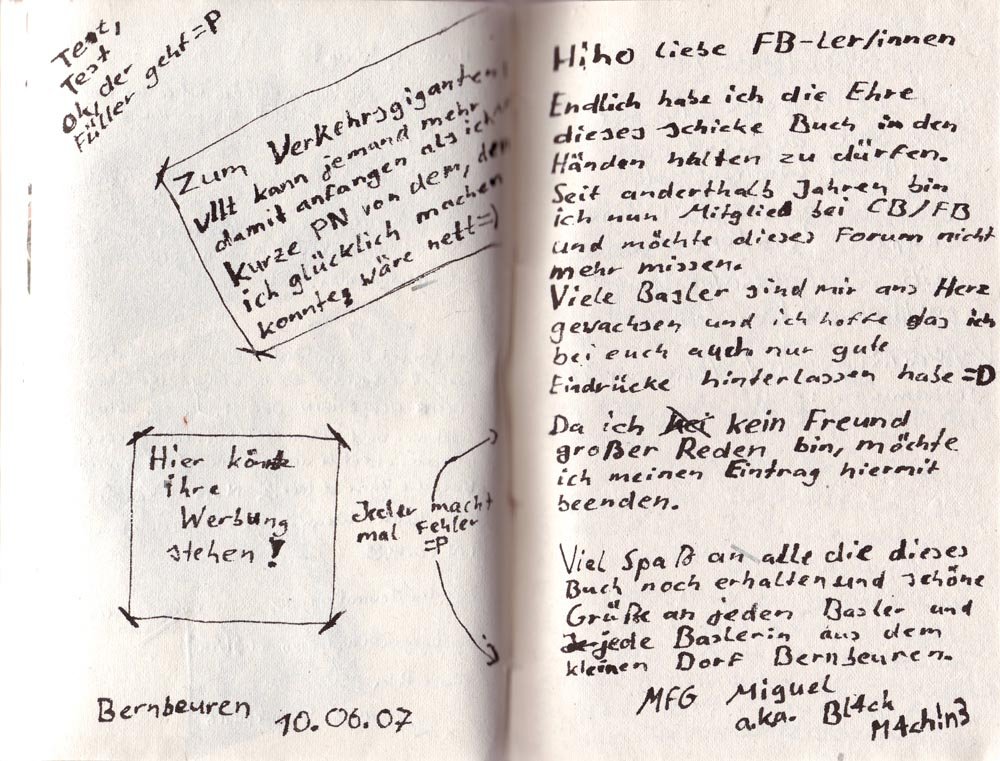 Test,
Test
ok, der
Füller geht =P
Zum Verkehrsgiganten!
Vllt kann jemand mehr
damit anfangen als ich
Kurze PN von dem, den
ich glücklich machen
konnte, wäre nett =)
Hier könnte
ihre
Werbung
stehen!
Jeder macht
mal Fehler
=P
Bernbeuren 10.06.07
Hiho liebe FB-ler/innen
Endlich habe ich die Ehre
dieses schicke Buch in den
Händen halten zu dürfen.
Seit anderthalb Jahren bin
ich nun Mitglied bei CB/FB
und möchte dieses Forum nicht
mehr missen.
Viele Basler sind mir ans Herz
gewachsen und ich hoffe das ich
bei euch auch nur gute
Eindrücke hinterlassen habe =D
Da ich kein Freund
großer Reden bin, möchte
ich meinen Eintrag hiermit
beenden.
Viel Spaß an alle die dieses
Buch noch erhalten und schöne
Grüße an jeden Basler und
jede Baslerin aus dem
kleinen Dorf Bernbeuren.
MFG Miguel
a.k.a. Bl4ch
M4ch!n3